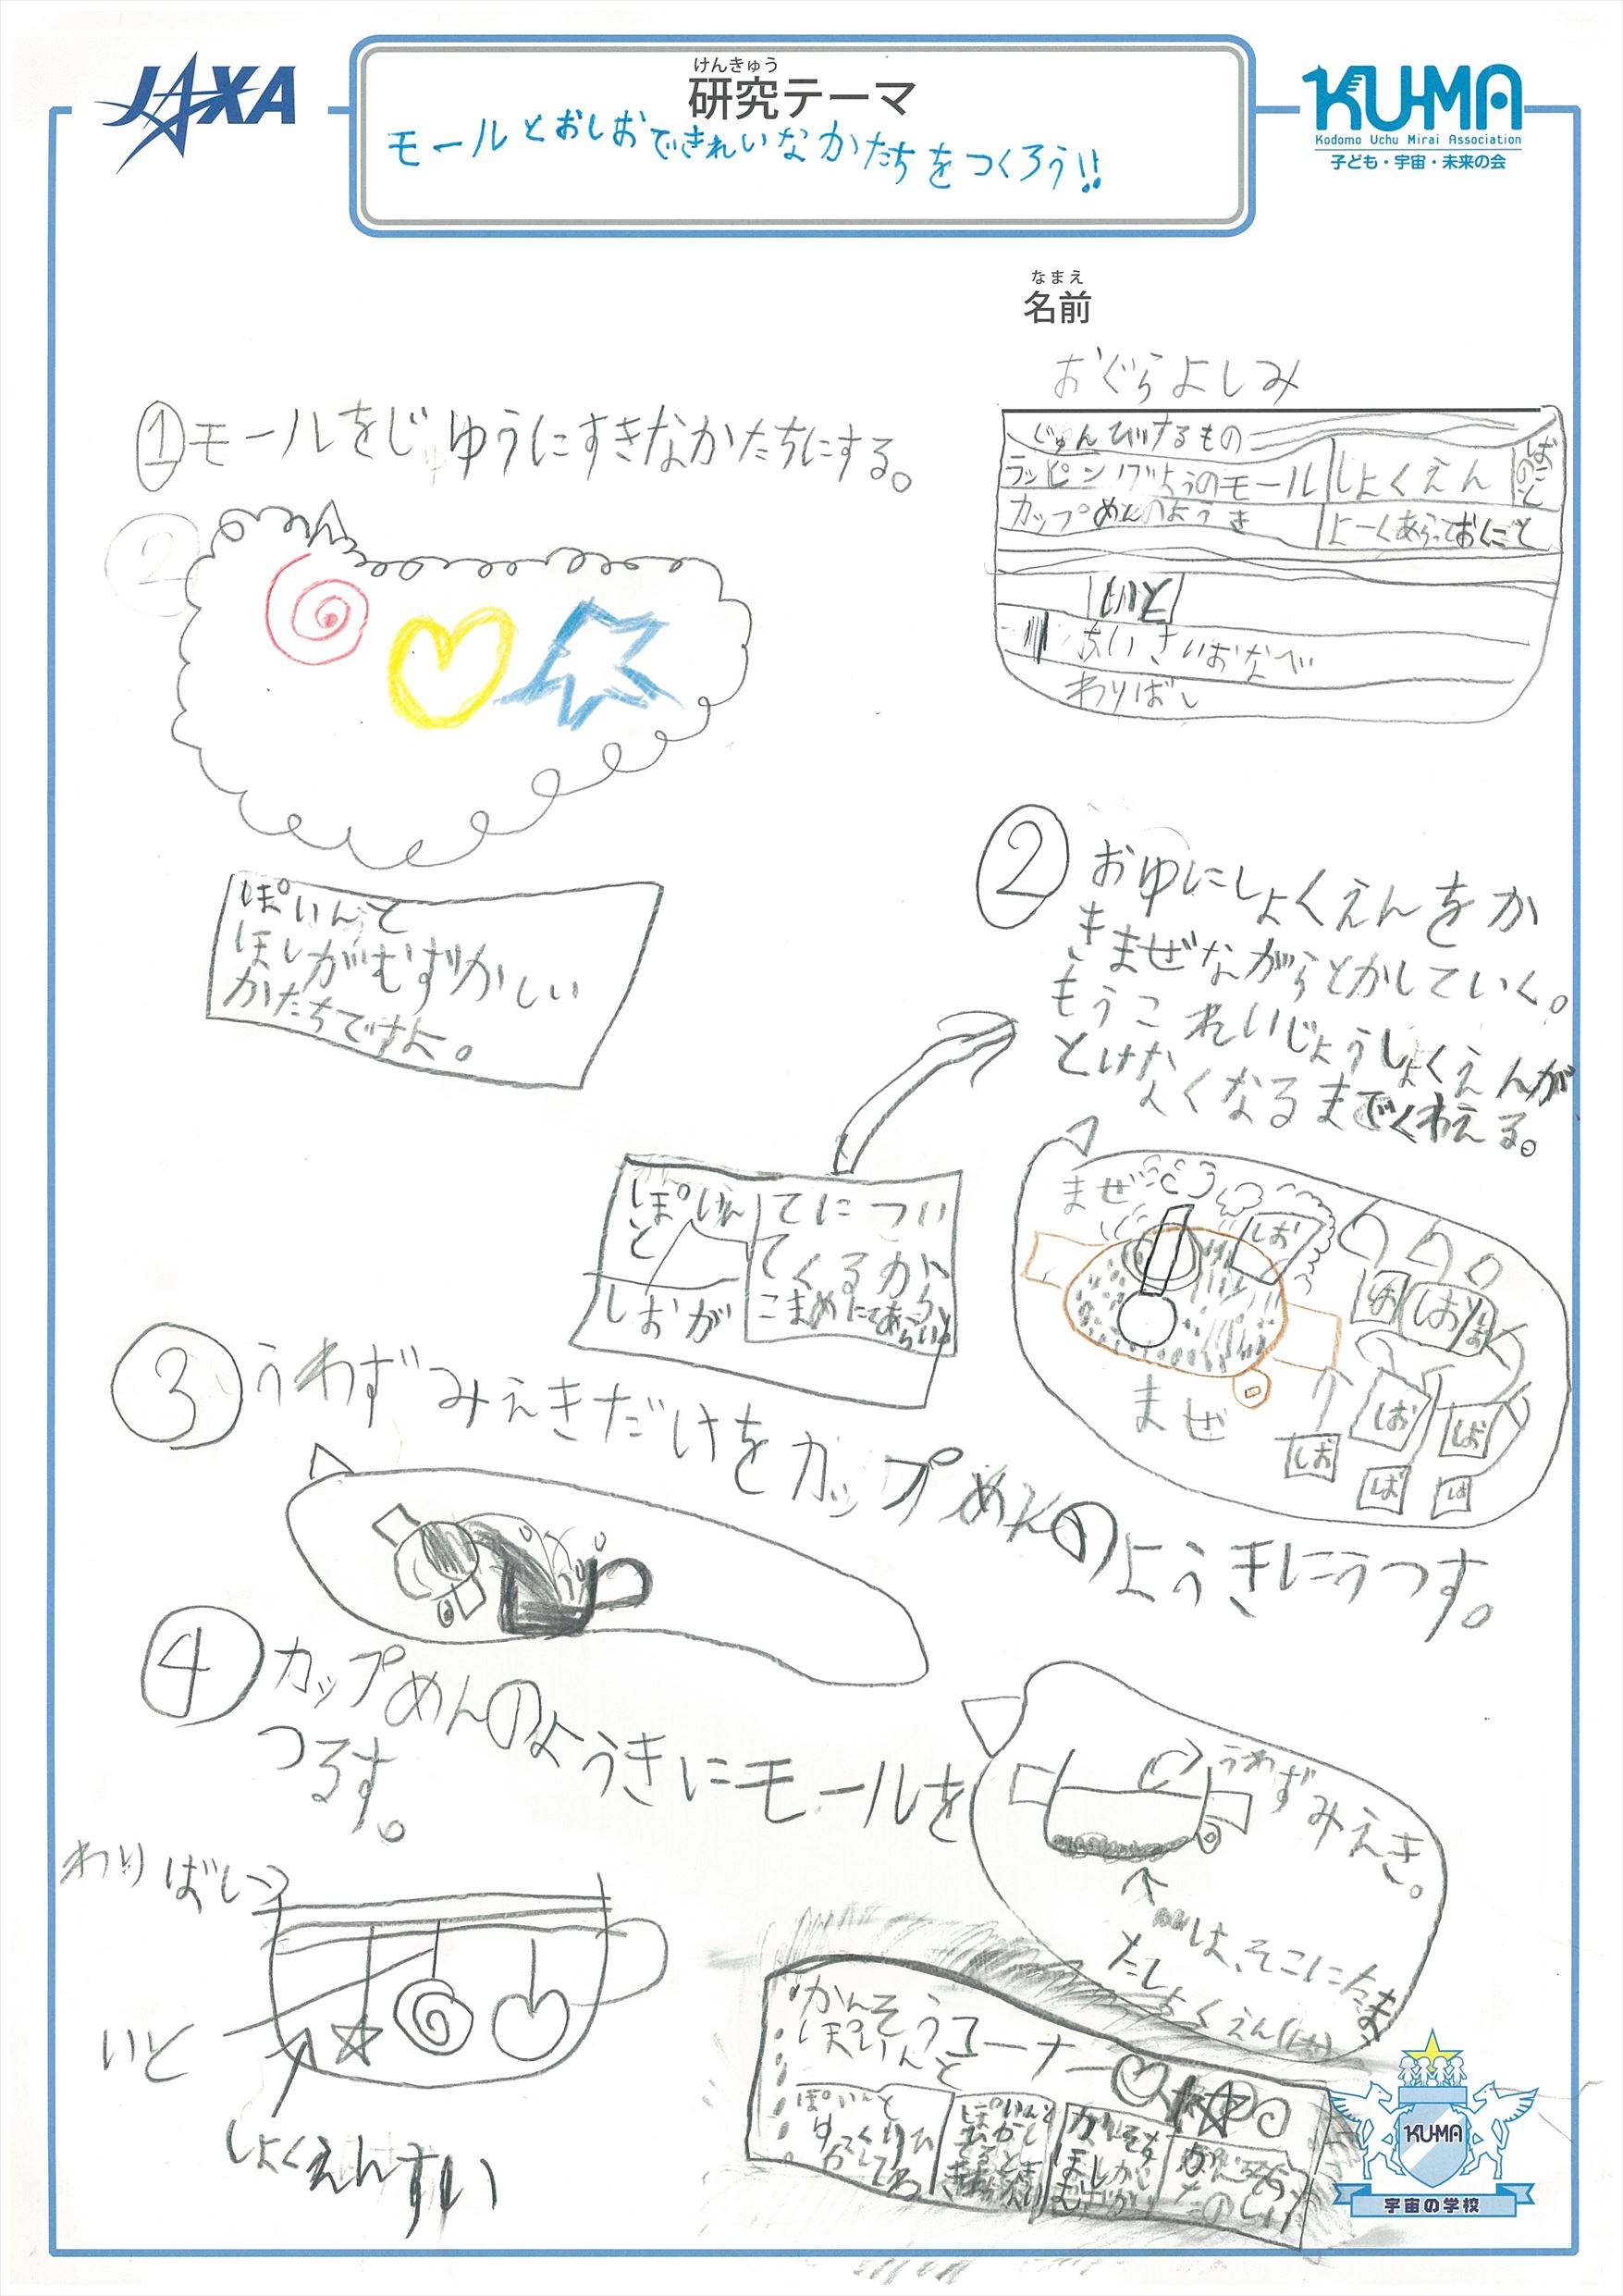 JAXA
けんきゅう
研究テーマ
モールとおしおできれいなかたちをつくろう!!
KU-MA
Kodomo Uchu Mirai Association
子ども・宇宙・未来の会
なまえ
名前
おぐらよしみ
じゅんびするもの
ラッピングようのモール
しょくえん
カップめんのようき
よーくあらっておくこと
いと
ちいさいおなべ
わりばし
①モールをじゆうにすきなかたちにする。
②
ぽいんと
ほしがむずかしい
かたちですよ。
②おゆにしょくえんをか
きまぜながらとかしていく。
もうこれいじょうしょくえんが
とけなくなるまでくわえる。
ぽいんと
しおが
てについ
てくるから
こまめにてあらいを
まぜ
しお
しお
しお
まぜ
しお
しお
しお
③うわずみえきだけをカップめんのようきにうつす。
④カップめんのようきにモールを
つるす。
うわずみえき。
は、そこにたま
った
しょくえん
わりばし
いと
しょくえんすい
かんそうコーナー
ぽいんと
ぽいんと
ゆっくり
KU-MA
宇宙の学校